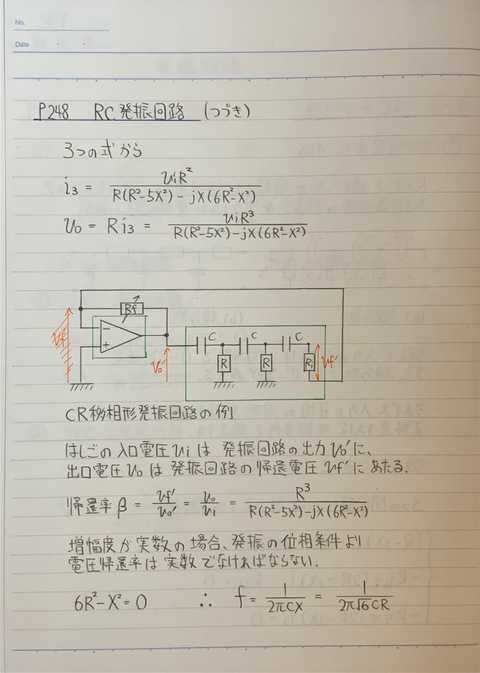 No.
Date
P248 RC発振回路 (つづき)
3つの式から
i₃ = viR² / R(R²-5X²) - jX(6R²-X²)
v₀ = Ri₃ = viR³ / R(R²-5X²) - jX(6R²-X²)
Rf
C C C
vf - + v₀' R R R vf'
CR移相形発振回路の例
はしごの入口電圧viは発振回路の出力v₀'に、
出口電圧v₀は発振回路の帰還電圧vf'にあたる.
帰還率β = vf'/v₀' = v₀/vi = R³ / R(R²-5X²)-jX(6R²-X²)
増幅度が実数の場合、発振の位相条件より
電圧帰還率は実数でなければならない.
6R²-X²=0 ∴ f = 1/2πCX = 1/2π√6CR